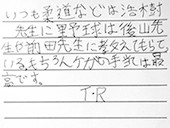 いつも柔道などは浩樹
先生に野球は後山先
生や前田先生に教えてもらて、
いるもちろんケガの手当は最
高です。
T・R